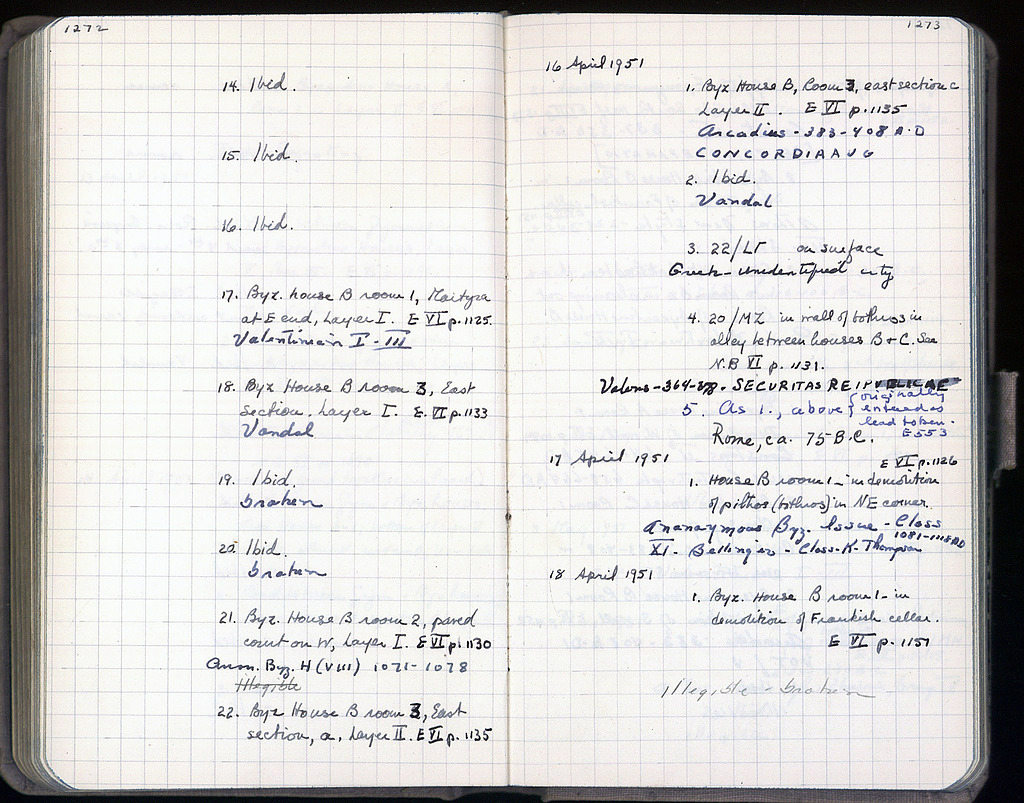 1272
14. Ibid.
15. Ibid.
16. Ibid.
17. Byz. house B room 1, Martyra
at E end, Layer I. E VI p. 1125.
Valentinian I - III
18. Byz House B room 3, East
section. Layer I. E. VI p. 1133
Vandal
19. Ibid.
broken
20. Ibid.
broken
21. Byz. House B room 2, paved
court on W, Layer I. E VI p. 1130
Anon. Byz. H (VIII) 1071-1078
Illegible
22. Byz House B room 3, East
section, a, Layer II. E VI p. 1135
1273
16 April 1951
1. Byz House B, Room 3, east section c
Layer II. E VI p. 1135
Arcadius - 383-408 A.D
CONCORDIA AVG
2. Ibid.
Vandal
3. 22/LT on surface
Greek - unidentified city
4. 20/MZ in wall of bothros in
alley between houses B + C. See
N.B VI p. 1131.
Valens - 364-78. SECURITAS REIPUBLICAE
5. As 1., above { originally
entered as
lead token.
E 553
Rome, ca. 75 B.C.
17 April 1951
E VI p. 1126
1. House B room 1 - in demolition
of pithos (bothros) in NE corner.
Ananaymous Byz. Issue - Class
XI - Bellinger - Class-K-Thompson
1081-1118 AD
18 April 1951
1. Byz. House B room 1 - in
demolition of Frankish cellar.
E VI p. 1151
Illegible - broken